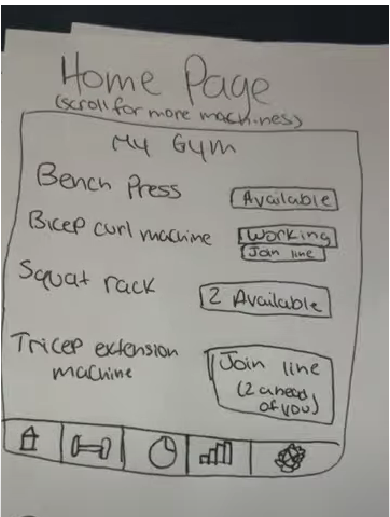 Home Page
(scroll for more machines)
My Gym
Bench Press
Available
Bicep curl machine
Working
Join line
Squat rack
2 Available
Tricep extension
machine
Join line
(2 ahead
of you)